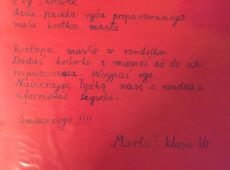 duża paczka ryżu preparowanego
mała kostka masła
Roztopić masło w rondelku
Dodać krówki i mieszać aż do ich
rozpuszczenia. Wsypać ryż
Nabierając łyżką masę z rondelka
uformować szyszki.
Smacznego !!!!
Marta J. klasa 1b